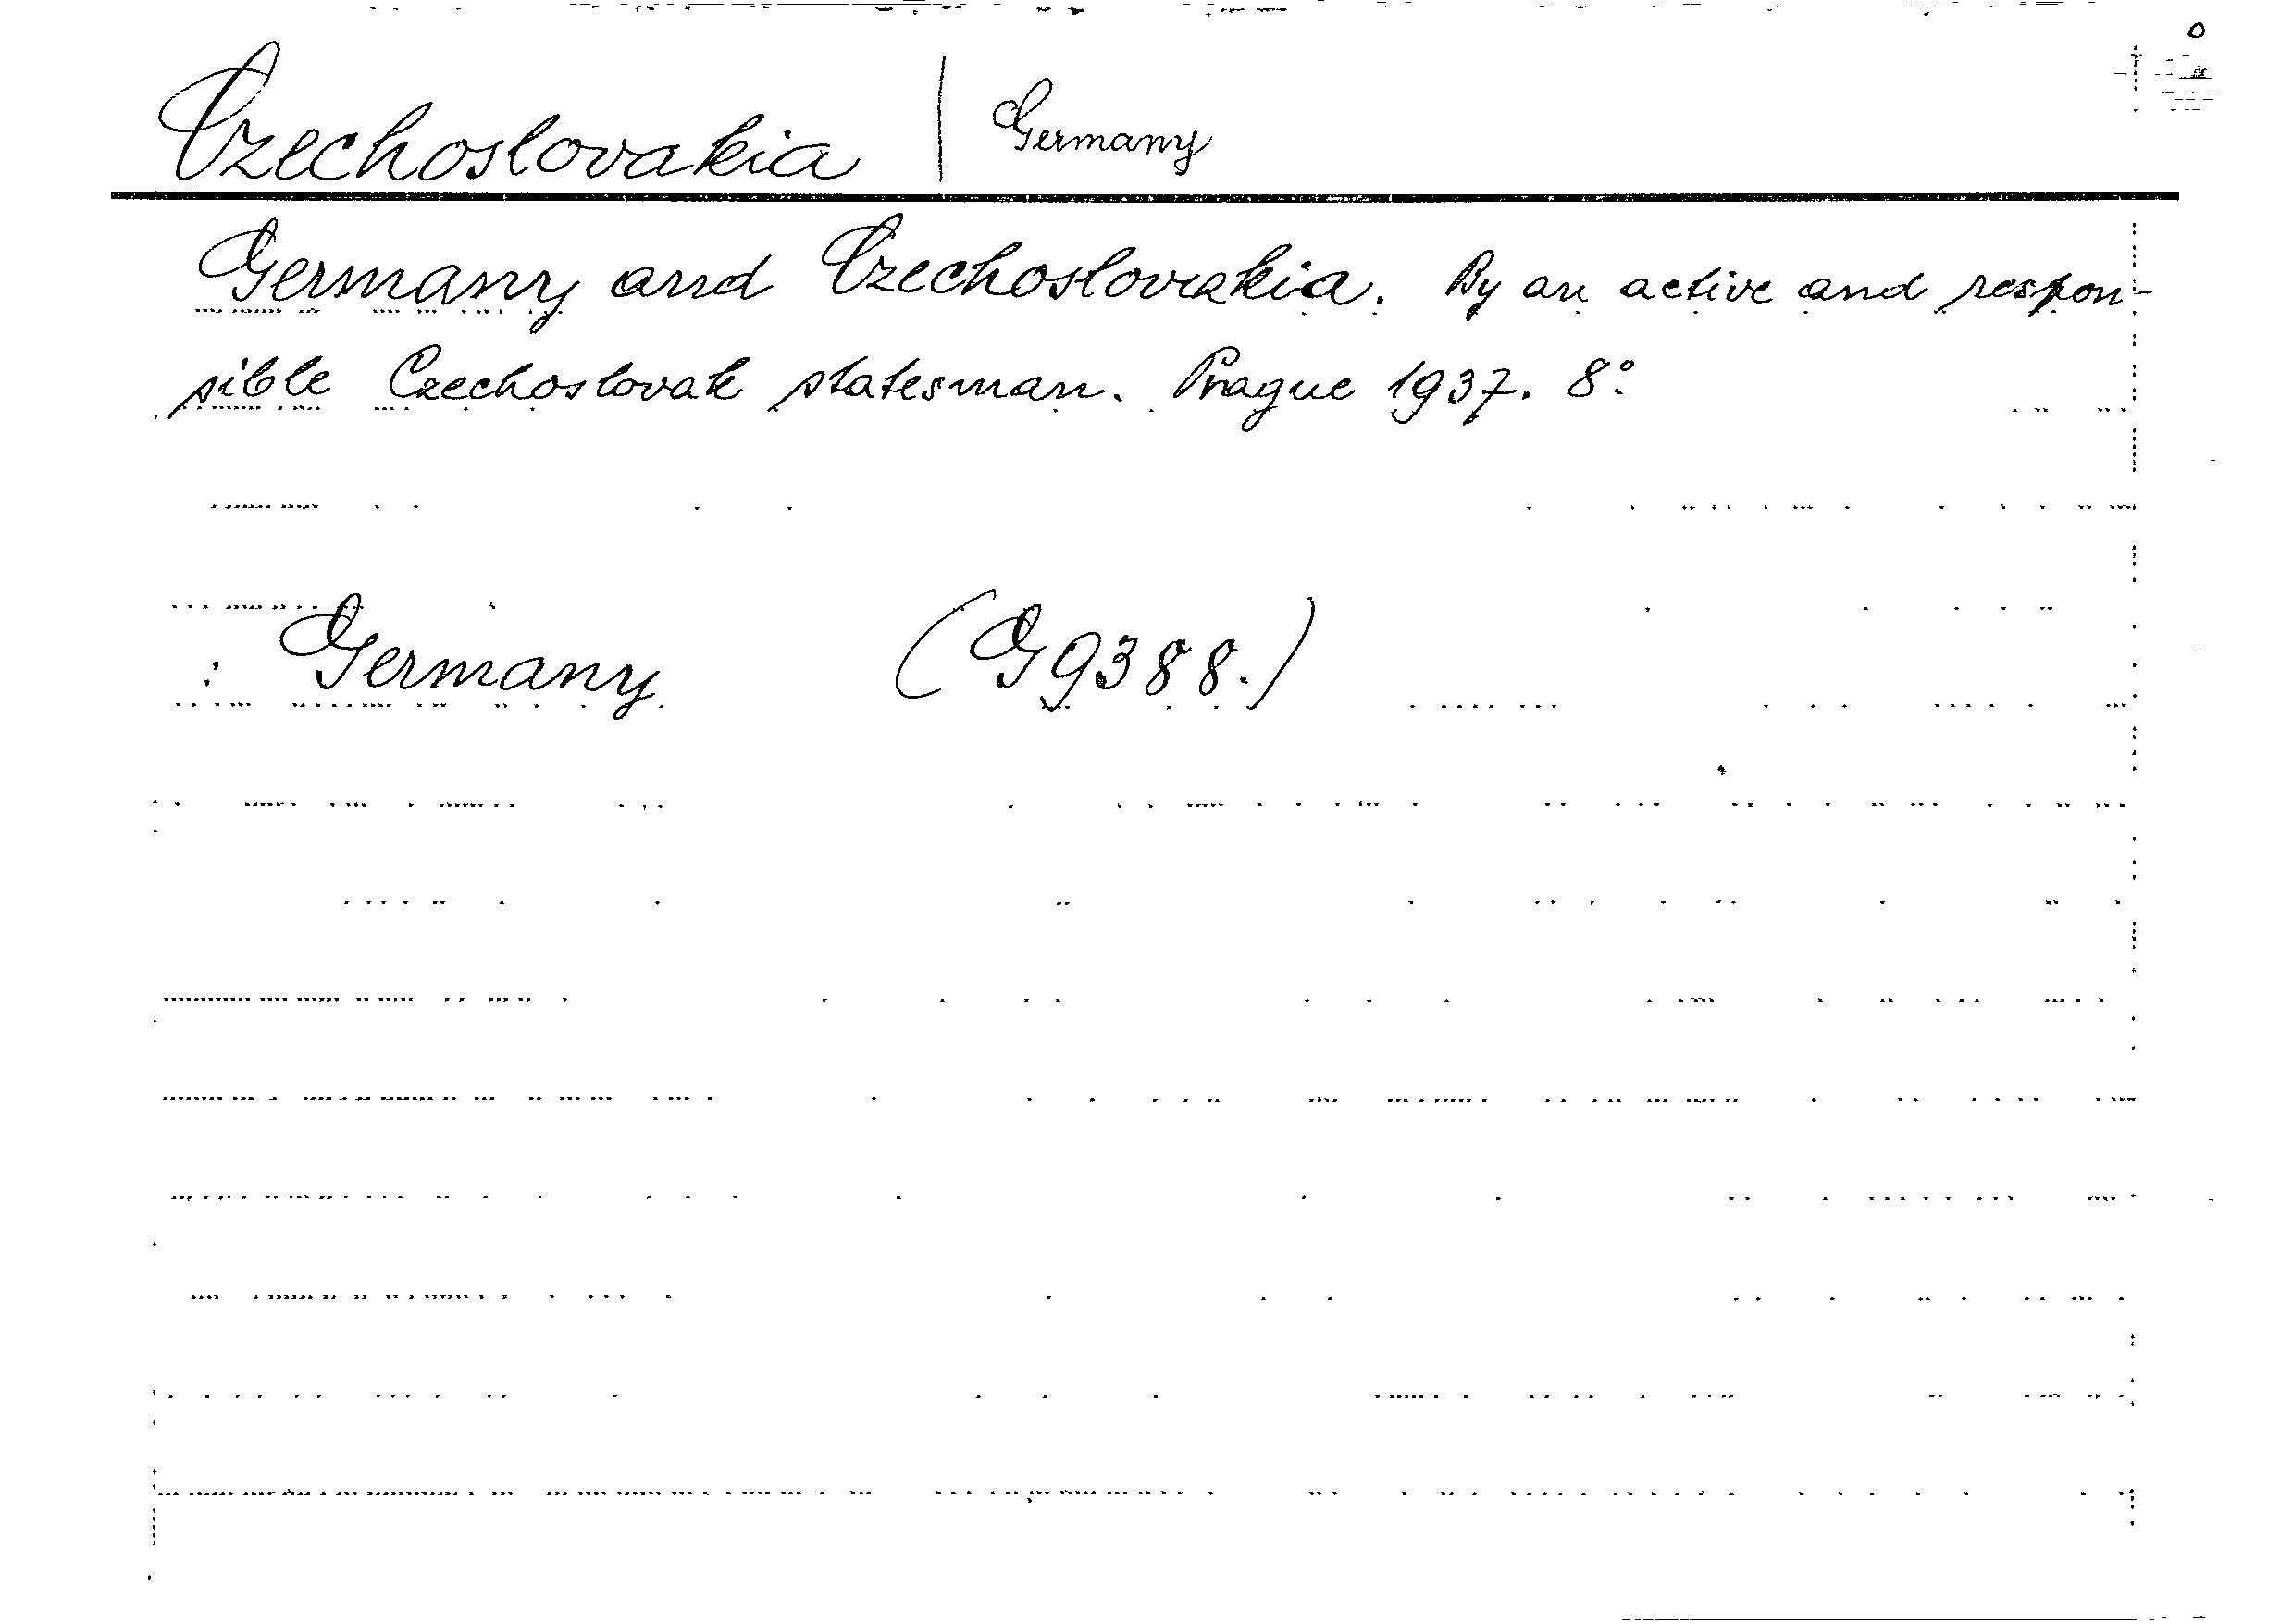 Czechoslovakia | Germany
Germany and Czechoslovakia. By an active and respon-
sible Czechoslovak statesman. Prague 1937. 8º.
: Germany (G9388.)